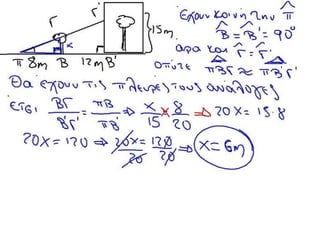 Γ Γ' 15m
x
π 8m B 12m B'
έχουν κοινή την π̂
B̂ = B̂' = 90°
άρα και Γ̂ = Γ̂'
οπότε πΒΓ ≈ πΒ'Γ'
Θα έχουν τις πλευρές τους ανάλογες
έτσι ΒΓ/Β'Γ' = πΒ/πΒ' ⇒ x/15 = 8/20 ⇒ 20x = 15·8
20x = 120 ⇒ 20x/20 = 120/20 ⇒ x = 6m